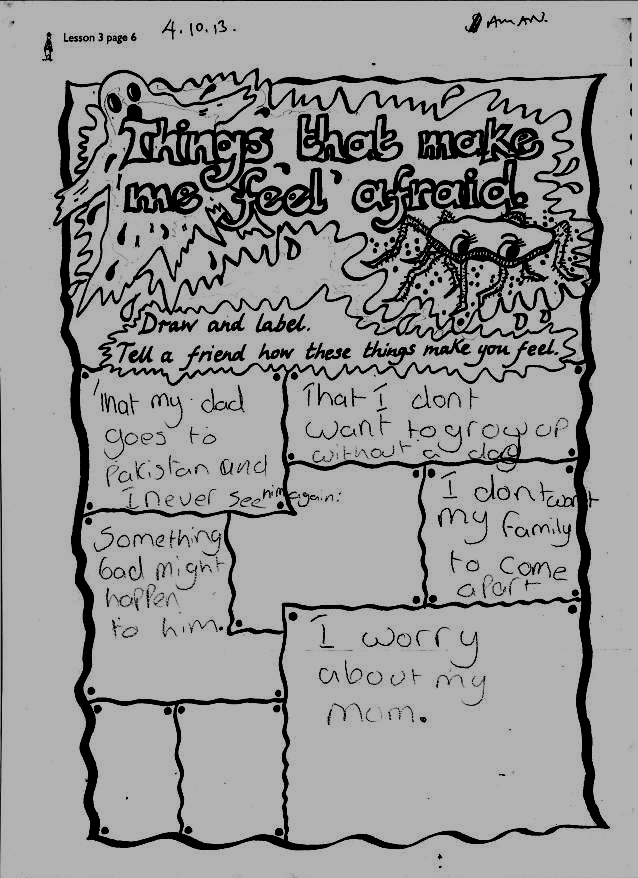 Lesson 3 page 6
4.10.13.
AMAN.
Things that make
me feel afraid.
Draw and label.
Tell a friend how these things make you feel.
That my dad
goes to
Pakistan and
I never see him again.
That I dont
want to grow up
without a dad
I dont want
my family
to come
apart
Something
bad might
happen
to him.
I worry
about my
mom.